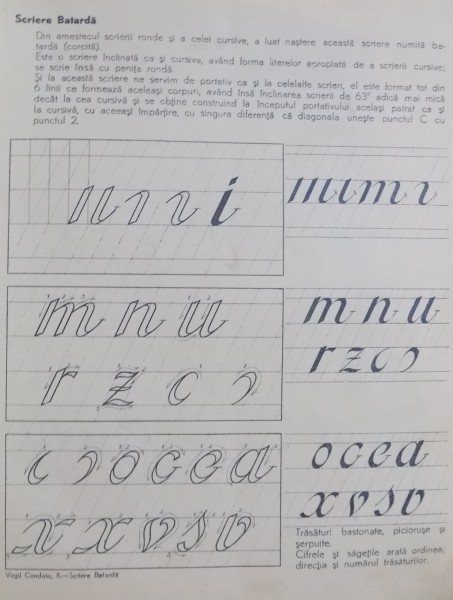 Scriere Batardă
Din amestecul scrierii ronde și a celei cursive, a luat naștere această scriere numită ba-
tardă (corcită).
Este o scriere înclinată ca și cursiva, avînd forma literelor apropiată de a scrierii cursive,
se scrie însă cu penița rondă.
Și la această scriere ne servim de portativ ca și la celelalte scrieri, el este format tot din
6 linii ce formează aceleași corpuri, avînd însă înclinarea scrierii de 63° adică mai mică
decît la cea cursivă și se obține construind la începutul portativului același patrat ca și
la cursivă, cu aceeași împărțire, cu singura diferență că diagonala unește punctul C cu
punctul 2.
i
m n u
m n u
r z c
r z c
o c e a
o c e a
x x v s v
x v s v
Trăsături bastonate, picioruşe și
șerpuite.
Cifrele și săgețile arată ordinea,
direcția și numărul trăsăturilor.
Virgil Candoiu, II.—Scriere Batardă